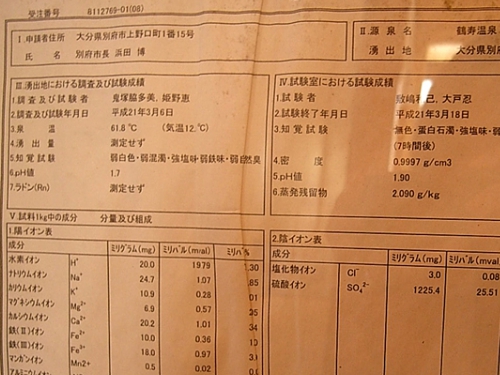 受注番号 8112769-01(08)
Ⅰ.申請者住所 大分県別府市上野口町1番15号
氏名 別府市長 浜田 博
Ⅱ.源泉名 鶴寿温泉
湧出地 大分県別府
Ⅲ.湧出地における調査及び試験成績
1.調査及び試験者 鬼塚脇多美、姫野恵
2.調査及び試験年月日 平成21年3月6日
3.泉温 61.8 ℃ (気温12.℃)
4.湧出量 測定せず
5.知覚試験 弱白色・弱混濁・強塩味・弱鉄味・弱 臭
6.pH値 1.7
7.ラドン(Rn) 測定せず
Ⅳ.試験室における試験成績
1.試験者 己、大戸忍
2.試験終了年月日 平成21年3月18日
3.知覚試験 無色・蛋白石濁・強塩味・弱
(7時間後)
4.密度 0.9997 g/cm3
5.pH値 1.90
6.蒸発残留物 2.090 g/kg
Ⅴ.試料1kg中の成分 分量及び組成
1.陽イオン表
成分 ミリグラム(mg) ミリバル(mval) ミリバル%
水素イオン H⁺ 20.0 19.79 .30
ナトリウムイオン Na⁺ 24.7 1.07 .85
カリウムイオン K⁺ 10.9 0.28 01
マグネシウムイオン Mg²⁺ 6.9 0.57
カルシウムイオン Ca²⁺ 20.2 1.01 34
鉄(Ⅱ)イオン Fe²⁺ 10.0 0.36
鉄(Ⅲ)イオン Fe³⁺ 18.0 0.97
マンガンイオン Mn2+ 0.5 0.02 0.
アルミニウムイオン
2.陰イオン表
成分 ミリグラム(mg) ミリバル(mval)
塩化物イオン Cl⁻ 3.0 0.08
硫酸イオン SO₄²⁻ 1225.4 25.51